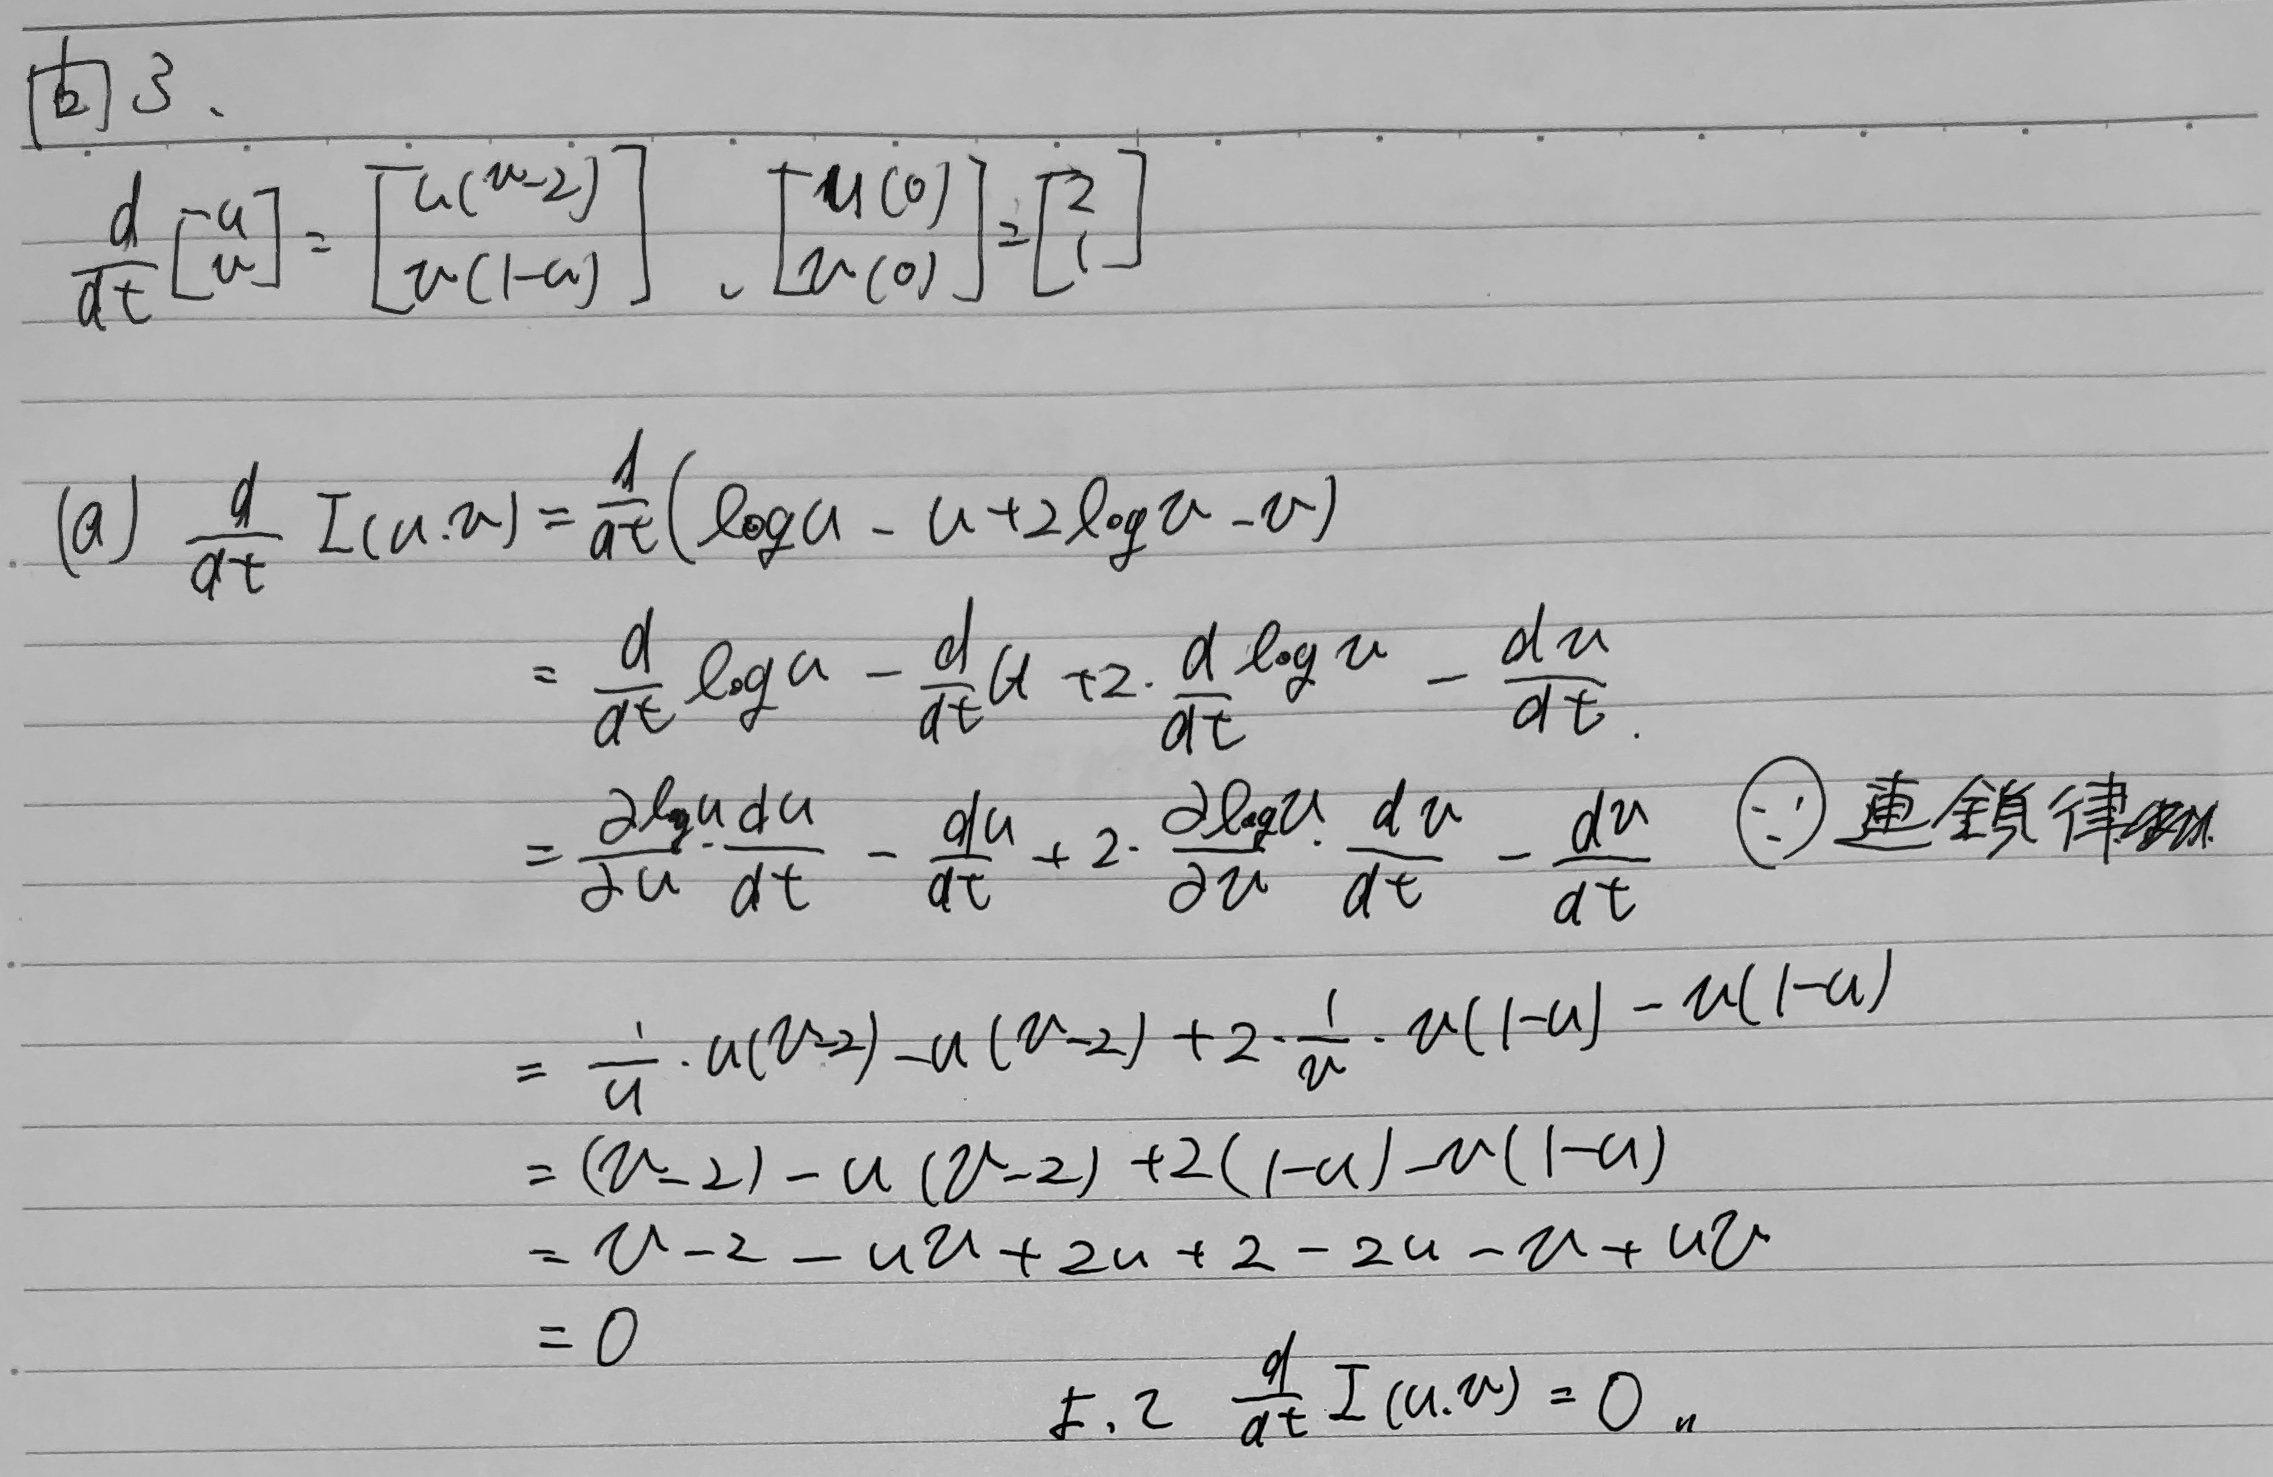 問3.
d/dt [u v] = [u(v-2) v(1-u)]、[u(0) v(0)] = [2 1]
(a) d/dt I(u.v) = d/dt (log u - u + 2 log v - v)
= d/dt log u - d/dt u + 2・d/dt log v - dv/dt.
= ∂log u/∂u・du/dt - du/dt + 2・∂log v/∂v・dv/dt - dv/dt (∵) 連鎖律
= 1/u・u(v-2) - u(v-2) + 2・1/v・v(1-u) - v(1-u)
= (v-2) - u(v-2) + 2(1-u) - v(1-u)
= v - 2 - uv + 2u + 2 - 2u - v + uv
= 0
よって d/dt I(u.v) = 0 〃